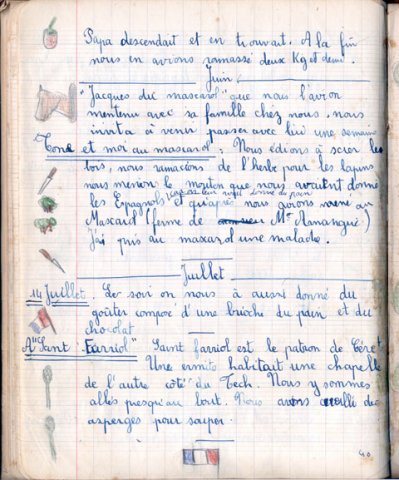 Papa descendait et en trouvait. A la fin
nous en avions ramassé deux Kg et demi.
Juin
"Jacques du mascarol" que nous l'avion
mentenu avec sa famille chez nous, nous
invita à venir passer avec lui une semaine
Tone et moi au mascarol : Nous édions à scier les
bois, nous ramacions de l'herbe pour les lapins
nous menion le mouton que nous avaient donné
les Espagnols et qu'après nous avons mené au
Mascard (ferme de Mr Amangué)
J'ai pris au maxarol une malade.
Juillet
14 Juillet. Le soir on nous à aussi donné du
goûter composé d'une brioche du pain et du
chocolat
A "Sant Farriol" Saint farriol est le patron de Céret
Une ermite habitait une chapelle
de l'autre côté du Tech. Nous y sommes
allés presqu'au bout. Nous avons cueilli des
asperges pour souper.
40